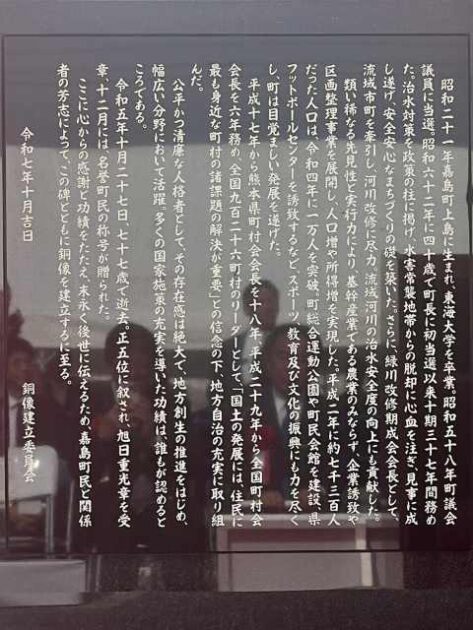 昭和二十一年嘉島町上島に生まれ、東海大学を卒業。昭和五十八年町議会
議員に当選。昭和六十二年に四十歳で町長に初当選以来十期三十七年間務め
た。治水対策を政策の柱に掲げ、水害常襲地帯からの脱却に心血を注ぎ、見事に成
し遂げ、安全安心なまちづくりの礎を築いた。さらに、緑川改修期成会会長として、
流域市町を牽引し、河川改修に尽力。流域河川の治水安全度の向上にも貢献した。
類い稀なる先見性と実行力により、基幹産業である農業のみならず、企業誘致や
区画整理事業を展開し、人口増や所得増を実現した。平成二年に約七千三百人
だった人口は、令和四年に一万人を突破。町総合運動公園や町民会館を建設、県
フットボールセンターを誘致するなど、スポーツ、教育及び文化の振興にも力を尽く
し、町は目覚ましい発展を遂げた。
平成十七年から熊本県町村会会長を十八年、平成二十九年から全国町村会
会長を六年務め、全国九百二十六町村のリーダーとして、「国土の発展には、住民に
最も身近な町村の諸課題の解決が重要」との信念の下、地方自治の充実に取り組
んだ。
公平かつ清廉な人格者として、その存在感は絶大で、地方創生の推進をはじめ、
幅広い分野において活躍。多くの国家施策の充実を導いた功績は、誰もが認めると
ころである。
令和五年十月二十七日、七十七歳で逝去。正五位に叙され、旭日重光章を受
章、十二月には、名誉町民の称号が贈られた。
ここに心からの感謝と功績をたたえ、末永く後世に伝えるため、嘉島町民と関係
者の芳志によって、この碑とともに銅像を建立するに至る。
令和七年十月吉日
銅像建立委員会